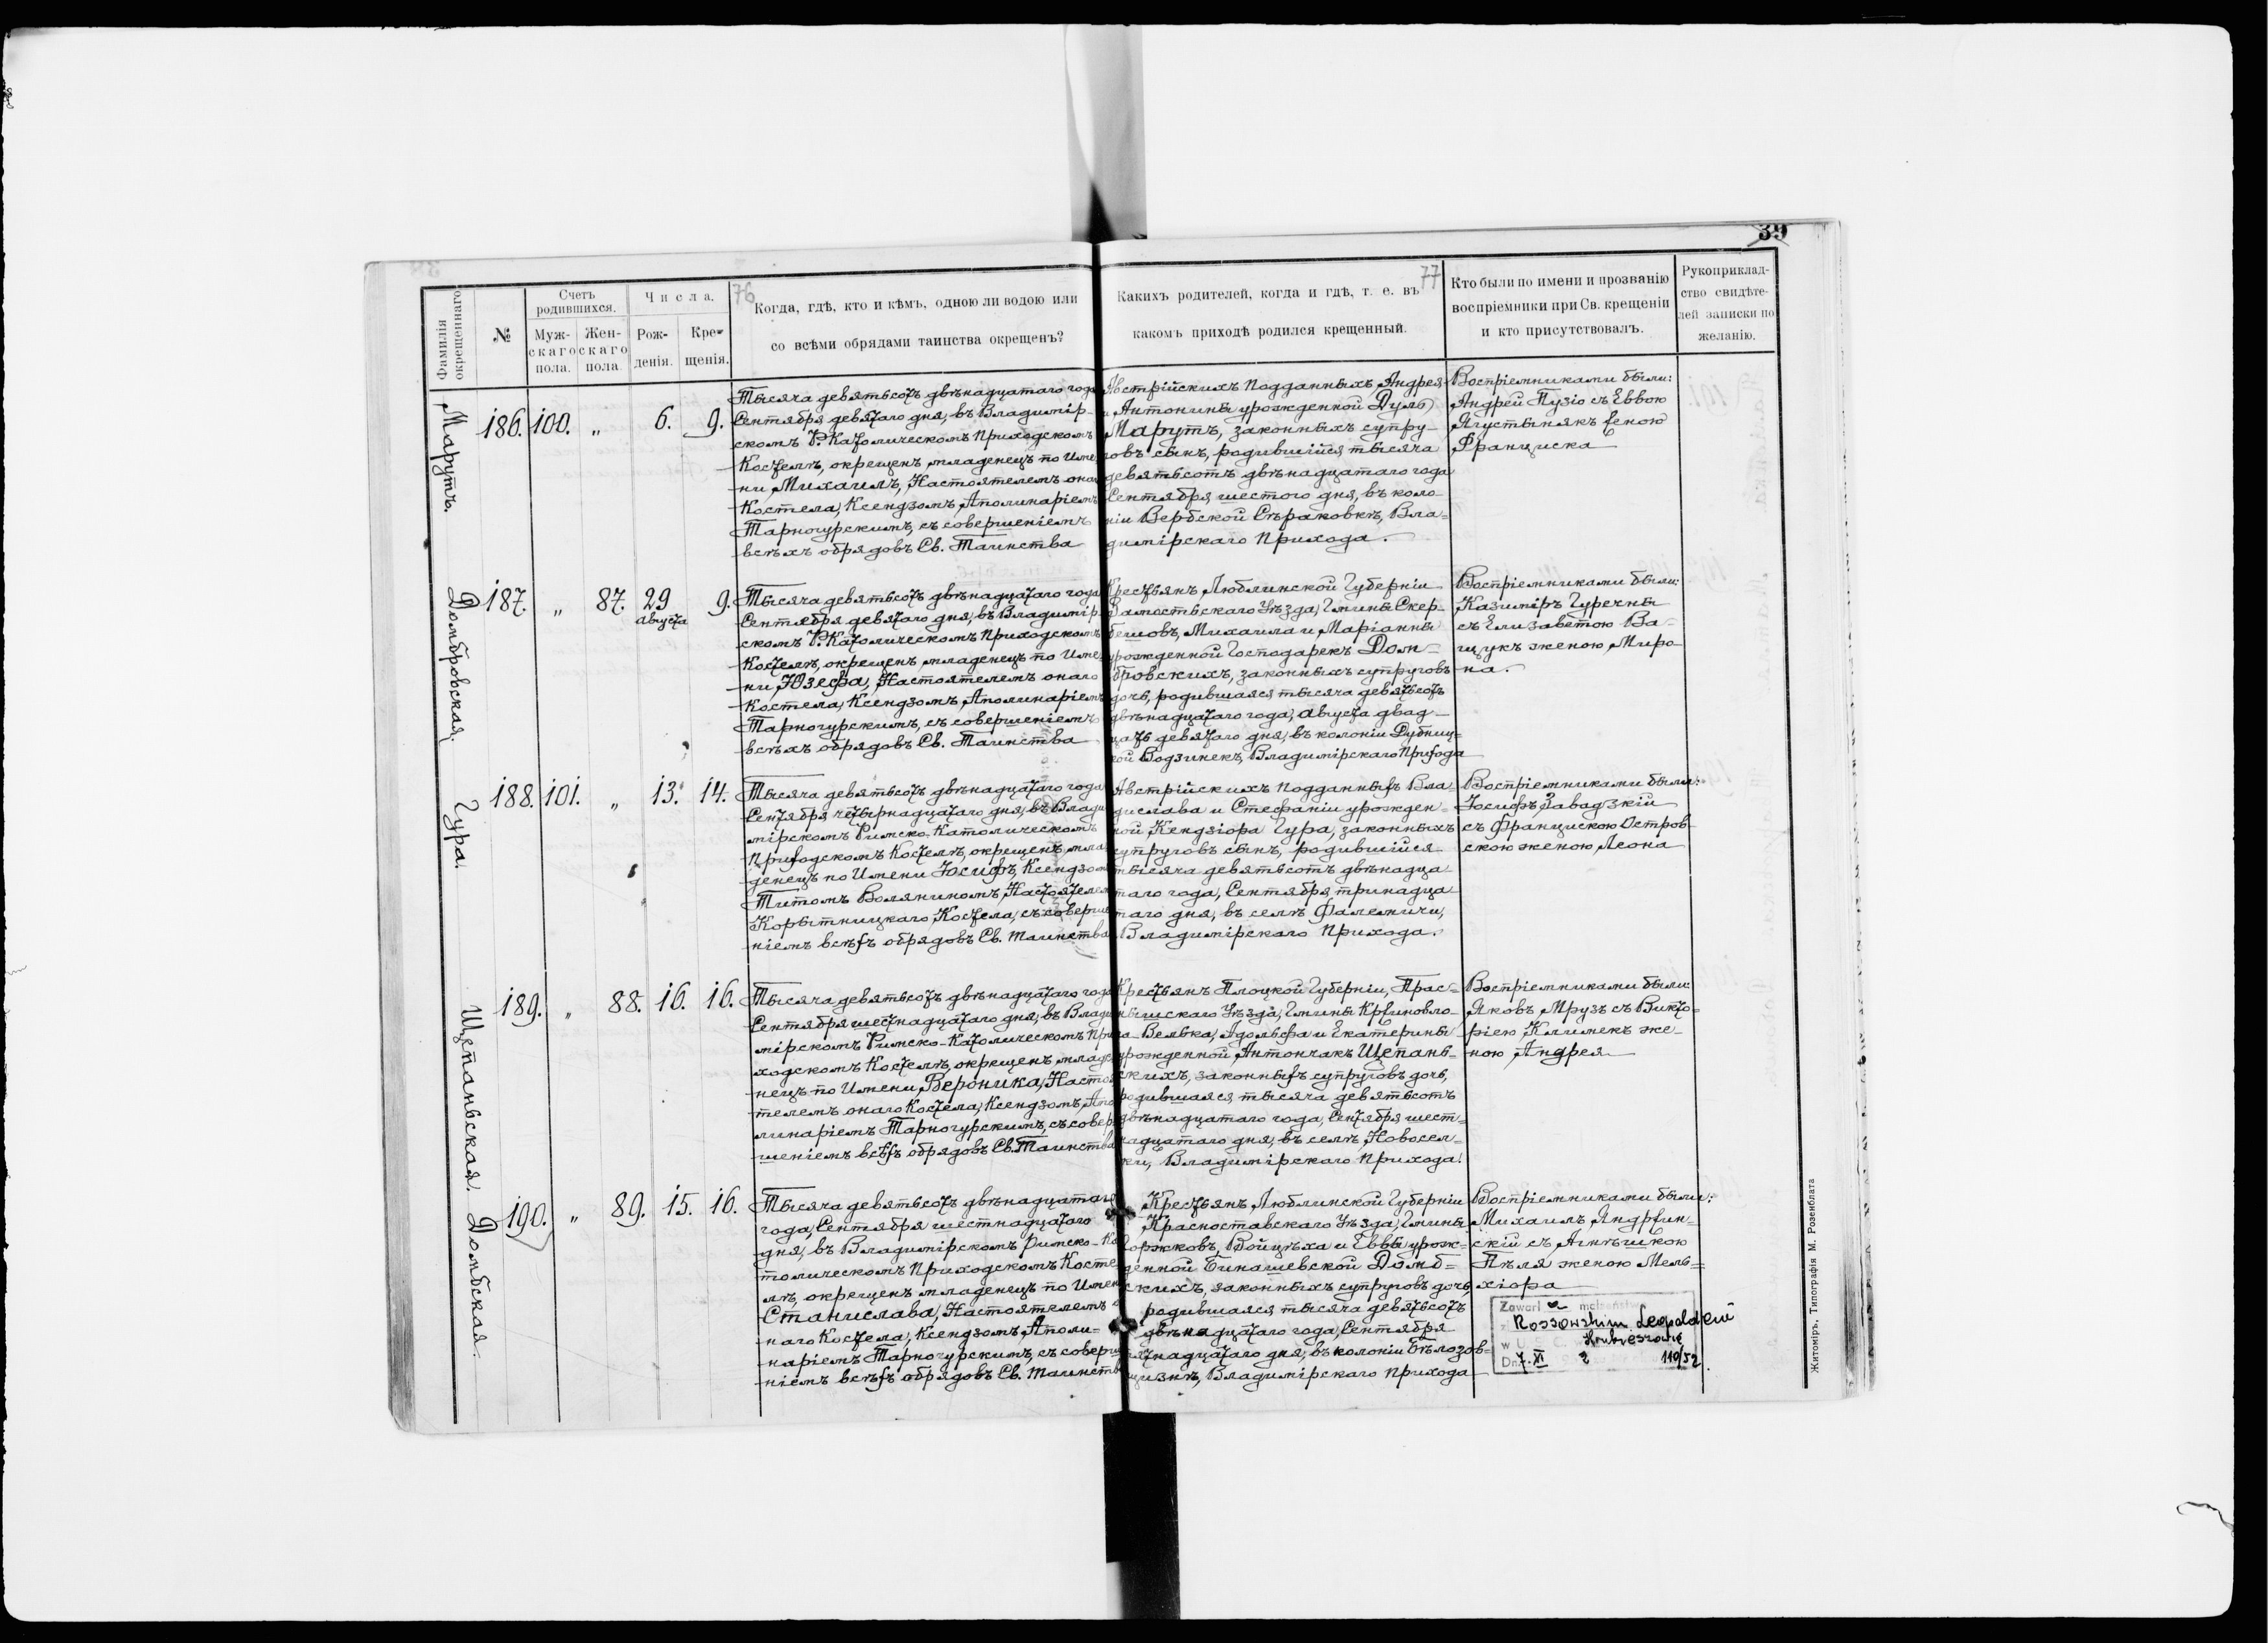 39
76
77
Фамилія окрещеннаго.
№
Счетъ родившихся.
Муж-
скаго
пола.
Жен-
скаго
пола.
Числа.
Рож-
денія.
Кре-
щенія.
Когда, гдѣ, кто и кѣмъ, одною ли водою или
со всѣми обрядами таинства окрещенъ?
Какихъ родителей, когда и гдѣ, т. е. въ
какомъ приходѣ родился крещенный.
Кто были по имени и прозванію
воспріемники при Св. крещеніи
и кто присутствовалъ.
Рукоприклад-
ство свидѣте-
лей записки по
желанію.
Марутъ.
186. 100. „ 6. 9.
Тысяча девятьсотъ двѣнадцатаго года
Сентября девятаго дня, въ Владимір-
скомъ Р. Католическомъ Приходскомъ
Костелѣ, окрещенъ младенецъ по Име-
ни Михаилъ, Настоятелемъ она
Костела, Ксендзомъ Аполинаріемъ
Тарногурскимъ, съ совершеніемъ
всѣхъ обрядовъ Св. Таинства
Австрійскихъ Подданныхъ Андрея
и Антонины урожденной Дуль
Марутъ, законныхъ супру-
говъ сынъ, родившійся тысяча
девятьсотъ двѣнадцатаго года
Сентября, шестого дня, въ коло-
ніи Вербской Сѣраковкѣ, Вла-
димірскаго Прихода.
Воспріемниками были:
Андрей Пузіо съ Еввою
Ягустынякъ женою
Франциска
Домбровская.
187. „ 87. 29 августа 9.
Тысяча девятьсотъ двѣнадцатаго года
Сентября девятаго дня, въ Владимір-
скомъ Р. Католическомъ Приходскомъ
Костелѣ, окрещенъ младенецъ по Име-
ни Юзефа, Настоятелемъ онаго
Костела, Ксендзомъ Аполинаріемъ
Тарногурскимъ, съ совершеніемъ
всѣхъ обрядовъ Св. Таинства
Крестьянъ Люблинской Губерніи
Замостьскаго Уѣзда, Гмины Скер-
бешовъ, Михаила и Маріанны
урожденной Господарекъ Дом-
бровскихъ, законныхъ супруговъ
дочь, родившаяся тысяча девятьсотъ
двѣнадцатаго года, августа двад-
цать девятаго дня, въ колоніи Дубниц-
кой Водзинекъ, Владимірскаго Прихода
Воспріемниками были:
Казиміръ Гуречны
съ Елизаветою Ва-
щукъ женою Миро-
на.
Гура.
188. 101. „ 13. 14.
Тысяча девятьсотъ двѣнадцатаго года
Сентября четырнадцатаго дня, въ Влади-
мірскомъ Римско-Католическомъ
Приходскомъ Костелѣ, окрещенъ мла-
денецъ по Имени Іосифъ, Ксендзом
Титомъ Воляниномъ, Настоятелем
Корытницкаго Костела, съ соверше
ніемъ всѣхъ обрядовъ Св. таинства.
Австрійскихъ Подданныхъ Вла-
дислава и Стефаніи урожден-
ной Кендзіора Гура, законныхъ
супруговъ сынъ, родившійся
тысяча девятьсотъ двѣнадца-
таго года, Сентября, тринадца-
таго дня, въ селѣ Фалемичи,
Владимірскаго Прихода.
Воспріемниками были:
Іосифъ Завадзкій
съ Францискою Остров-
скою женою Леона
Щепаньская.
189. „ 88. 16. 16.
Тысяча девятьсотъ двѣнадцатаго года
Сентября шестнадцатаго дня, въ Влади
мірскомъ Римско-Католическомъ При
ходскомъ Костелѣ, окрещенъ младе
нецъ по Имени Вероника, Насто
телемъ онаго Костела, Ксендзомъ, Апо
линаріемъ Тарногурскимъ, съ совер
шеніемъ всѣхъ обрядовъ Св. Таинства
Крестьянъ Плоцкой Губерніи, Прас-
нышскаго Уѣзда, Гмины
Велька, Адольфа и Екатерины
урожденной Антончакъ Щепань-
скихъ, законныхъ супруговъ дочь,
родившаяся тысяча девятьсотъ
двѣнадцатаго года, Сентября шест-
надцатаго дня, въ селѣ Новосел-
ки, Владимірскаго Прихода.
Воспріемниками были:
Яковъ Мрузъ съ Викто-
ріею Климекъ же-
ною Андрея
Домбская.
190. „ 89. 15. 16.
Тысяча девятьсотъ двѣнадцатаго
года, Сентября шестнадцатаго
дня, въ Владимірскомъ Римско-Ка
толическомъ Приходскомъ Косте
лѣ, окрещенъ младенецъ по Имен
Станислава, Настоятелемъ о
наго Костела, Ксендзомъ Аполи-
наріемъ Тарногурскимъ, съ соверш
ніемъ всѣхъ обрядовъ Св. таинств
Крестьянъ Люблинской Губерніи
Красноставскаго Уѣзда, Гмины
Горжковъ, Войцѣха и Еввы урож-
денной Бинашевской Домб-
скихъ, законныхъ супруговъ дочь,
родившаяся тысяча девятьсотъ
двѣнадцатаго года, Сентября
пятнадцатаго дня, въ колоніи Бѣлозов-
щизнѣ, Владимірскаго Прихода
Воспріемниками были:
Михаилъ Яндржин-
скій съ Агнѣшкою
Пѣля женою Мель-
хіора
Zawarł a małżeństwo
z Kossowskim Leopoldem
w U. S. C. Hrubieszowie
Dn. 7.XI 2 110/52.
Житоміръ, Типографія М. Розенблата